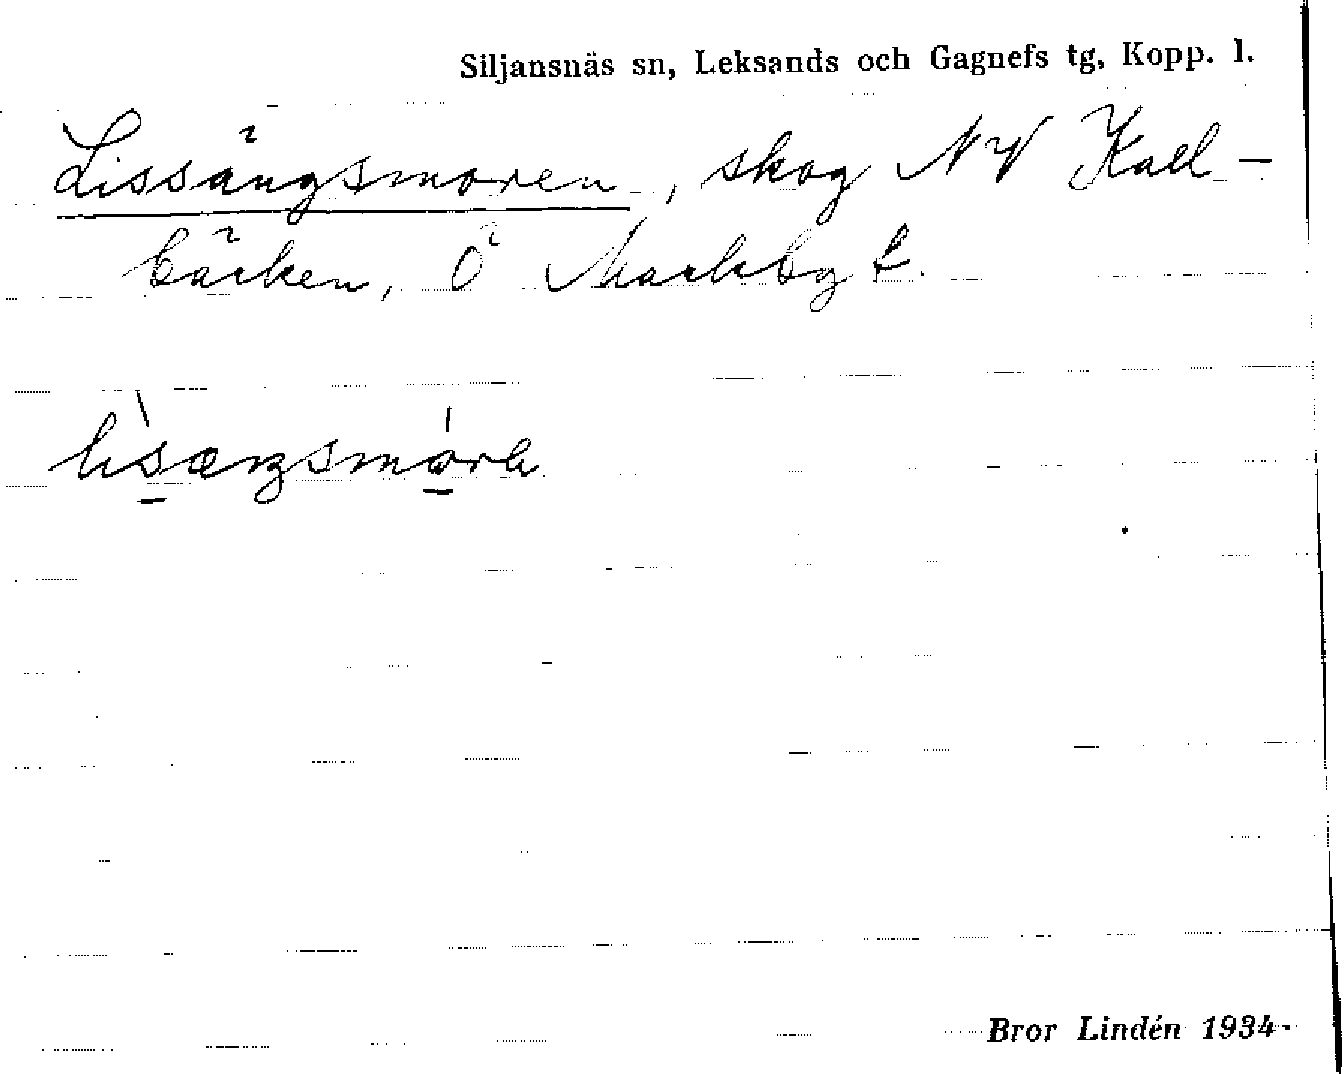 Siljansnäs sn, Leksands och Gagnefs tg, Kopp. l.
Lissängsmoren, skog NV Kall-
bäcken, Ö Backby
Bror Lindén 1934